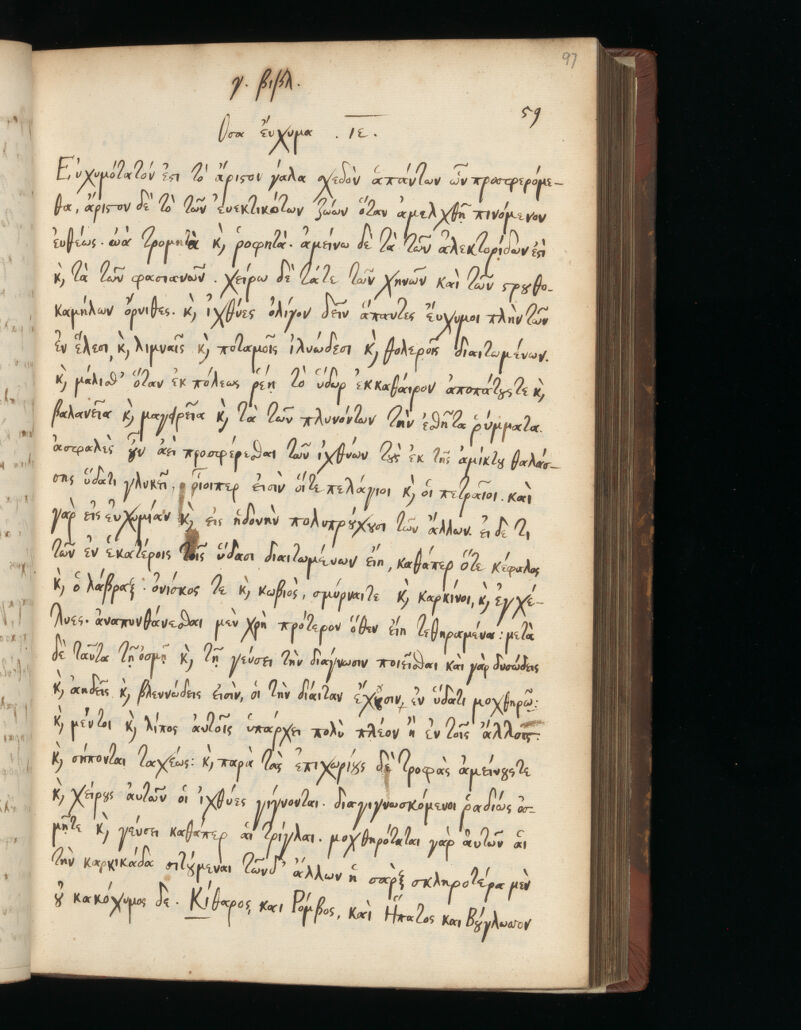 97
γ. βιβλ.
59
Οσα ἔυχυμα . ιε.
Εὐχυμότατόν ἐϛι τὸ ἄριϛον γάλα σχεδὸν ἁπάντων ὧν προσφερόμε-
θα, ἄριστον δὲ τὸ τῶν ἐυεκτικώτων ζώων ὅταν ἀμελχθῆ πινόμενον
ἐυθέως. ὠὰ τρομητὰ κ, ῥοφητά. ἀμείνω δὲ τὰ τῶν ἀλεκτορίδων ἐϛὶ
κ, τὰ τῶν φασιανῶν . χείρω δὲ τάτε τῶν χηνῶν καὶ τῶν ϛρȣθο-
καμήλων ὄρνιθες. κ, ἰχθύες ὀλίγον δεῖν ἅπαντες ἔυχυμοι πλὴν τῶν
ἐν ἕλεσι, κ, λιμναῖς κ, ποταμοῖς ἰλυώδεσι κ, θολεροῖς διαιτωμένων.
κ, μάλιϛα ὅταν ἐκ πόλεως ῥέῃ τὸ ὕδωρ ἐκκαθάιρον ἀποπάτȣϛτε κ,
βαλανεῖα κ, μαγειρεῖα κ, τὰ τῶν πλυνόντων τὴν ἐσθῆτα ῥύμματα.
ἀσφαλὲς ȣ̓ν ἀεὶ προσφέρεσθαι τῶν ἰχθύων τȣ̀ς ἐκ τῆς ἀμίκτȣ θαλάσ-
σης ὕδατι γλυκεῖ. οἷοιπερ εἰσὶν ὅιτε πελάγιοι κ, ὁι πετραῖοι. καὶ
γὰρ εἰς εὐχυμίαν κ, εἰς ἡδονὴν πολυπρȣχȣσι τῶν ἄλλων. εἰ δε τι
τῶν ἐν ἑκατέροις τοῖς ὕδασι διαιτωμένων ἔιη, καθάπερ ὅτε κέφαλος
κ, ὁ λάβραξ. ὀνίσκος τε κ, κωβιὸς, σμύρναιτε κ, καρκίνοι, κ, ἐγχέ-
λυες. ἀναπυνθάνεσθαι μὲν χρὴ πρότερον ὅθεν ἔιη τεθηραμένα: μετὰ
δὲ ταῦτα τῆ ὀσμῆ κ, τῆ γεύσει τὴν διάγνωσιν ποιεῖσθαι καὶ γὰρ δυσώδεις
κ, ἀηδεῖς κ, βλεννώδεις εἰσὶν, ὁι τὴν δίαιταν ἔχȣσιν, ἐν ὕδατι μοχθηρῷ:
κ, μέντοι κ, λίπος ἀυτοῖς ὑπάρχει πολὺ πλέον ἢ ἐν τοῖς ἄλλοις:
κ, σήπονται ταχέως: κ, παρὰ τὰς ἐπιχωρίȣς δὲ τροφὰς ἀμείνȣϛτε
κ, χείρȣς ἀυτῶν ὁι ἰχθύες γίγνονται. διαγιγνωσκόμενοι ῥαδίως ὀσ-
μῆτε κ, γέυσει καθάπερ ἁι τρίγλαι. μοχθηρόταται γὰρ ἀυτῶν ἁι
τὴν καρκικάδα σιτȣ́μεναι τῶνδ' ἄλλων ἡ σὰρξ σκληροτέρα μὲν
ȣ̓ κακόχυμος δε. Κίθαρος, και Ρόμβος, καὶ Ἥπατος και Βȣ́γλωσσον